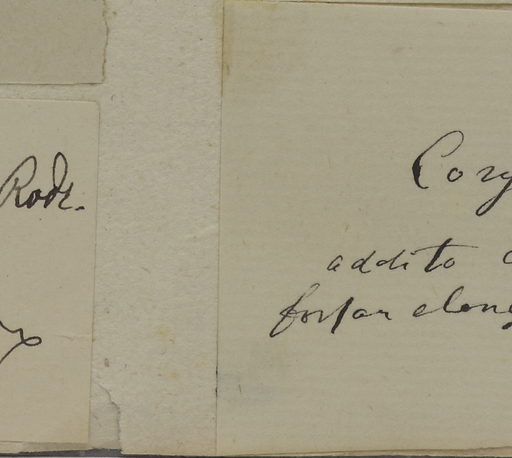 Rodr.
Cory
addito
forsan elong